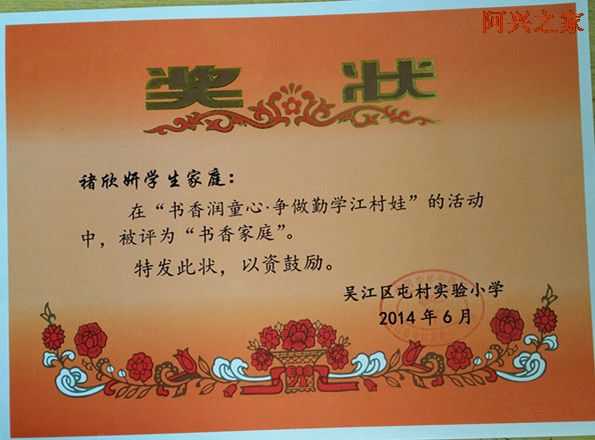 阿兴之家
奖状
禇欣妍学生家庭：
在“书香润童心·争做勤学江村娃”的活动
中，被评为“书香家庭”。
特发此状，以资鼓励。
吴江区屯村实验小学
2014年6月